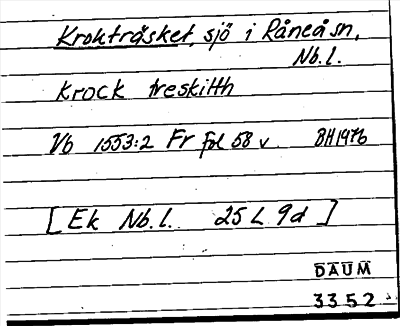 Krokträsket, sjö i Råneå sn,
Nb.l.
Krock treskitth
Vb 1553:2 Fr fol 58 v. BH1976
[Ek Nb.l. 25 L 9d]
DAUM
3352